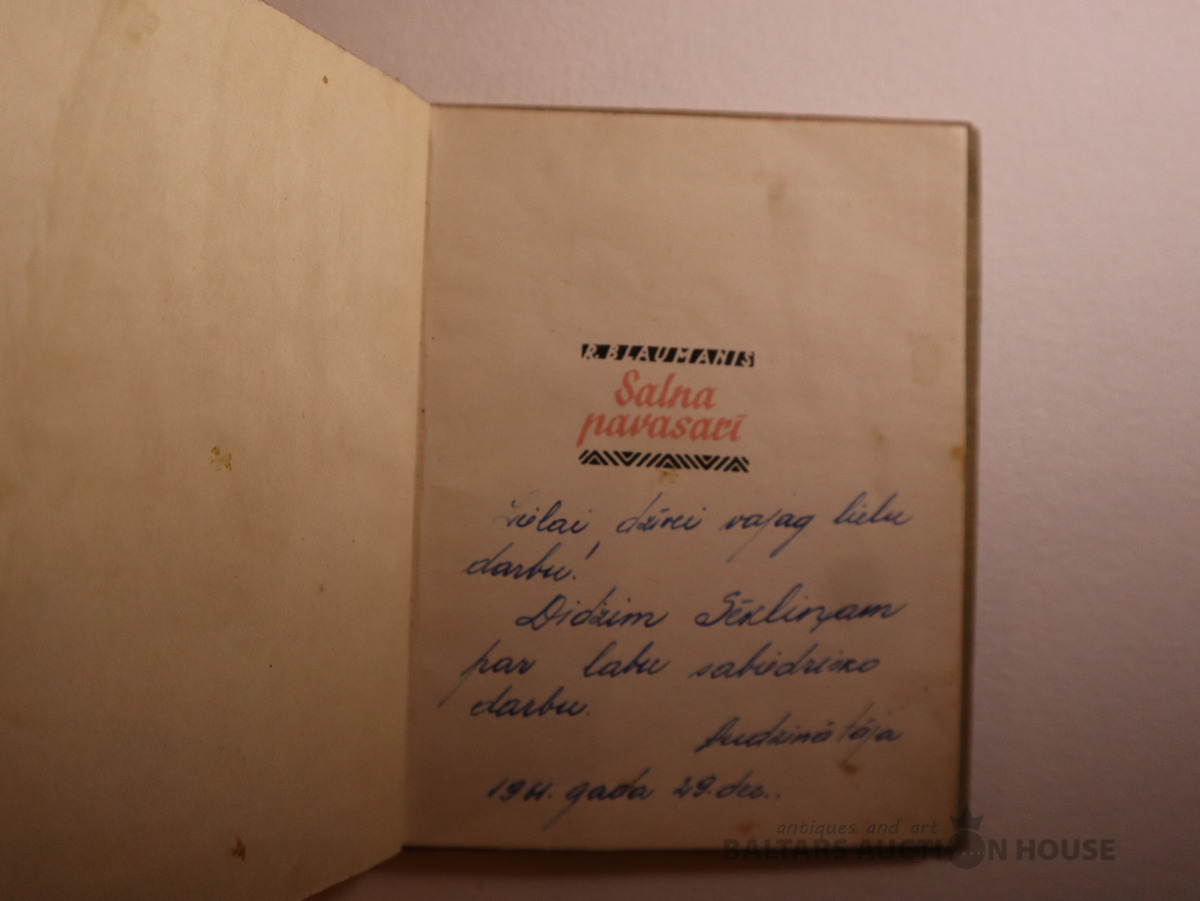 R. BLAUMANIS
Salna
pavasarī
Lielai dzīvei vajag lielu
darbu!
Didzim Sēkliņam
par labu sabiedrisko
darbu.
Audzinātāja
1961. gada 29. dec.
antiques and art
BALTARS AUCTION HOUSE